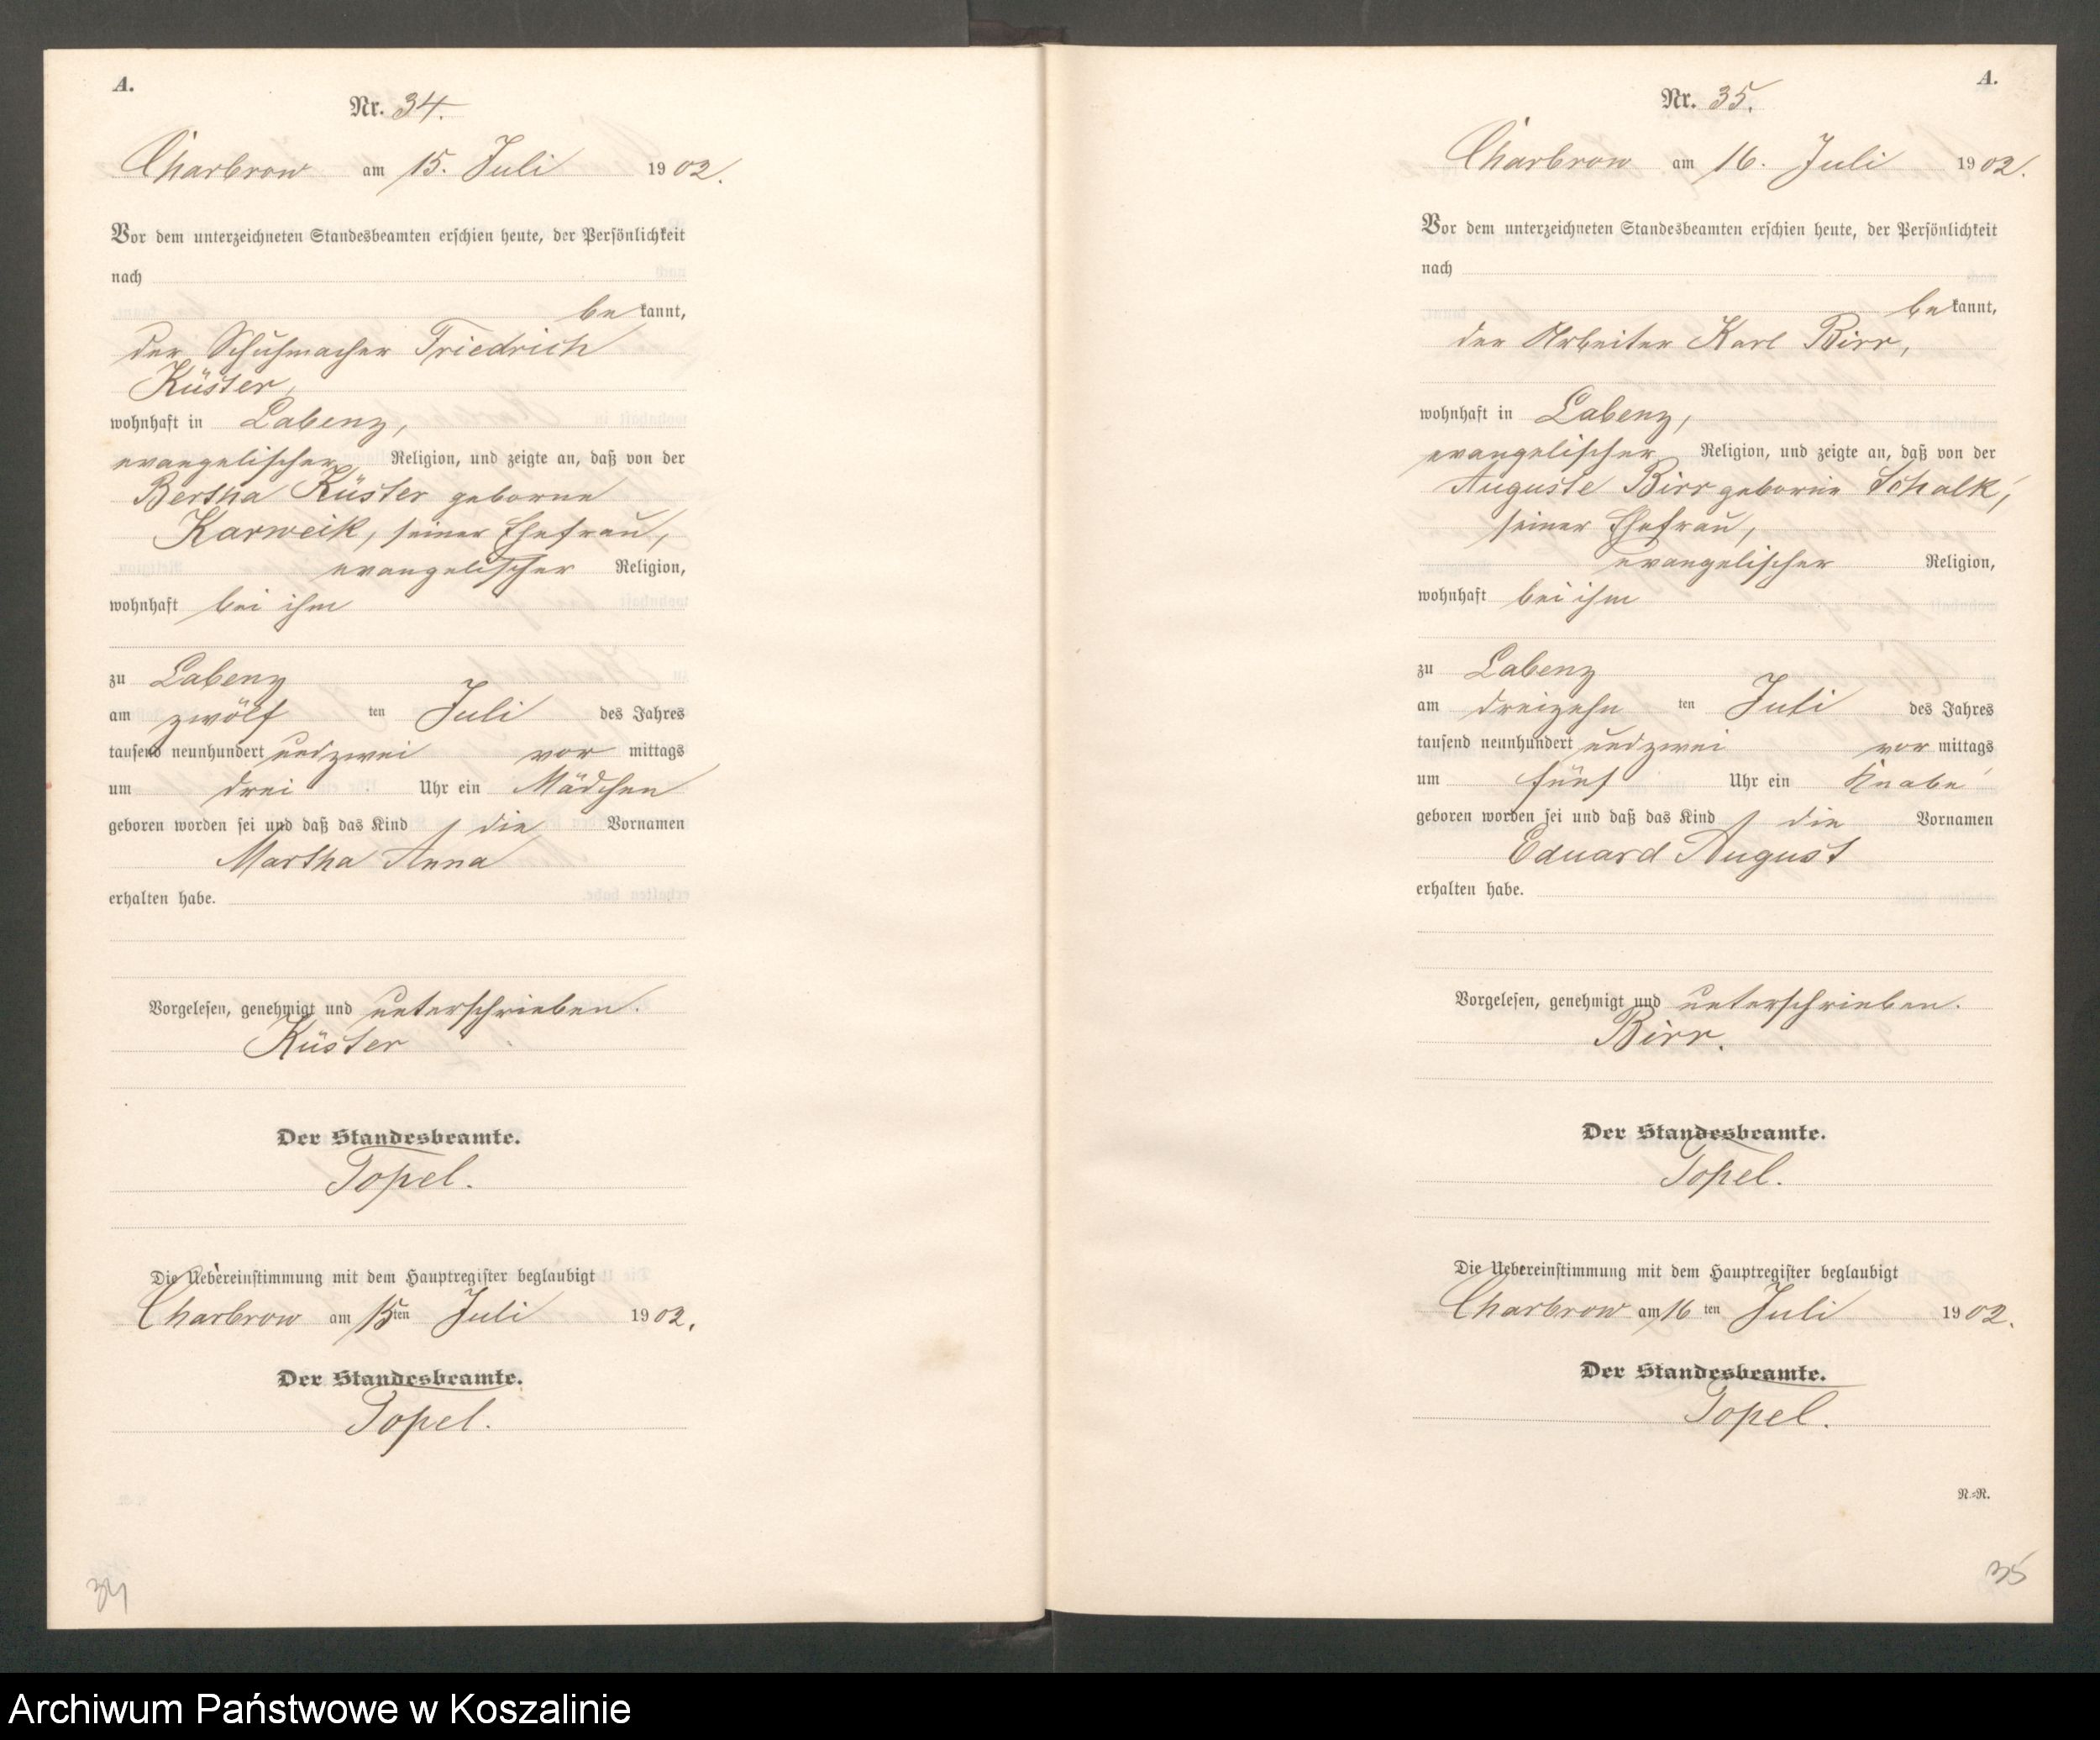 A.
Nr. 34.
Charbrow am 15. Juli 1902.
Vor dem unterzeichneten Standesbeamten erschien heute, der Persönlichkeit
nach
bekannt,
der Schuhmacher Friedrich
Küster,
wohnhaft in Labenz,
evangelischer Religion, und zeigte an, daß von der
Bertha Küster geborne
Karweik, seiner Ehefrau,
evangelischer Religion,
wohnhaft bei ihm
zu Labenz
am zwölf ten Juli des Jahres
tausend neunhundert und zwei vor mittags
um drei Uhr ein Mädchen
geboren worden sei und daß das Kind die Vornamen
Martha Anna
erhalten habe.
Vorgelesen, genehmigt und unterschrieben.
Küster
Der Standesbeamte.
Topel.
Die Uebereinstimmung mit dem Hauptregister beglaubigt
Charbrow am 15ten Juli 1902.
Der Standesbeamte.
Topel.
34
A.
Nr. 35.
Charbrow am 16. Juli 1902.
Vor dem unterzeichneten Standesbeamten erschien heute, der Persönlichkeit
nach
bekannt,
der Arbeiter Karl Birr,
wohnhaft in Labenz,
evangelischer Religion, und zeigte an, daß von der
Auguste Birr geborne Schalk,
seiner Ehefrau,
evangelischer Religion,
wohnhaft bei ihm
zu Labenz
am dreizehn ten Juli des Jahres
tausend neunhundert und zwei vor mittags
um fünf Uhr ein Knabe
geboren worden sei und daß das Kind die Vornamen
Eduard August
erhalten habe.
Vorgelesen, genehmigt und unterschrieben.
Birr.
Der Standesbeamte.
Topel.
Die Uebereinstimmung mit dem Hauptregister beglaubigt
Charbrow am 16 ten Juli 1902.
Der Standesbeamte.
Topel.
N.=R.
35
Archiwum Państwowe w Koszalinie